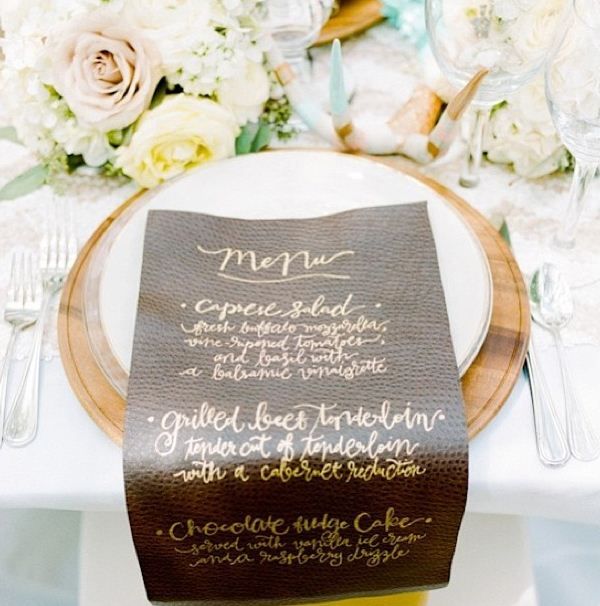 Menu
• caprese salad •
fresh buffalo mozzarella,
vine-ripened tomatoes,
and basil with
a balsamic vinaigrette
• grilled beef tenderloin •
tender cut of tenderloin
with a cabernet reduction
• Chocolate fudge Cake •
served with vanilla ice cream
and a raspberry drizzle